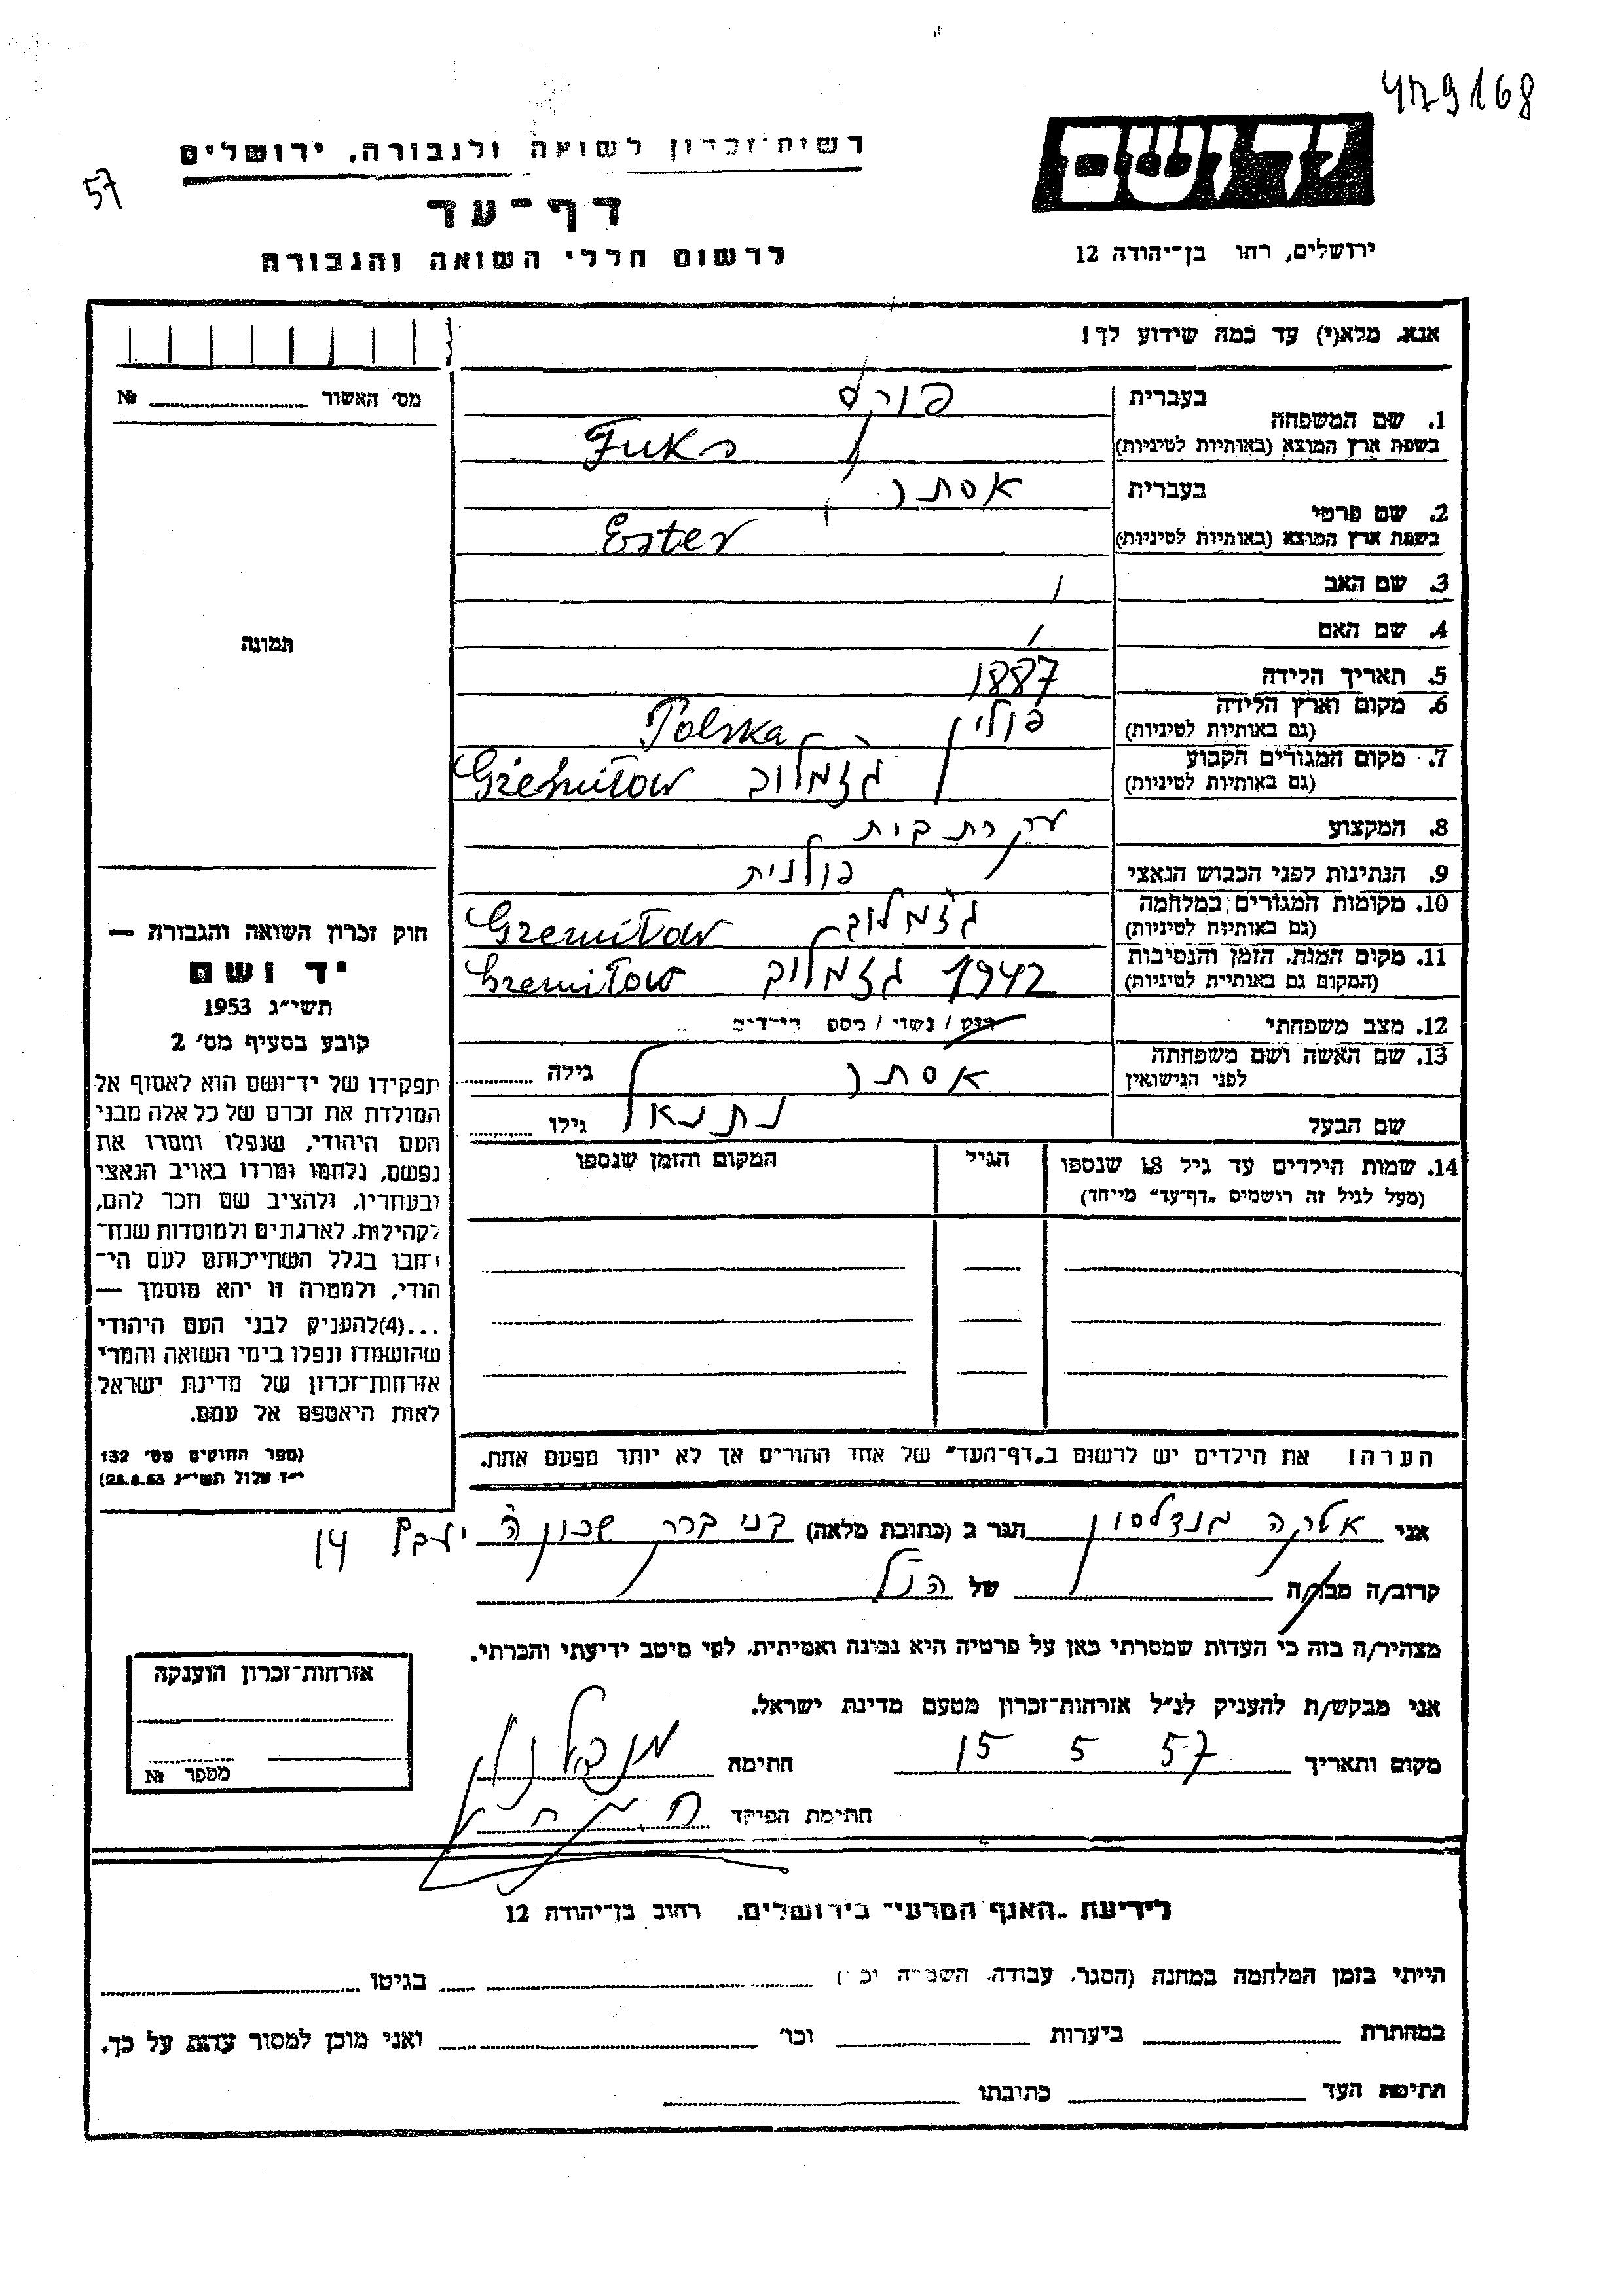 479168
יד ושם
רשות־זכרון לשואה ולגבורה, ירושלים
57
דף־עד
לרשום חללי השואה והגבורה
ירושלים, רחו בן־יהודה 12
אנא, מלא(י) עד כמה שידוע לך!
מס׳ האשור № 
1. שם המשפחה בעברית פוקס
בשפת ארץ המוצא (באותיות לטיניות) Fuks
2. שם פרטי בעברית אסתר
בשפת ארץ המוצא (באותיות לטיניות) Ester
3. שם האב /
4. שם האם /
תמונה
5. תאריך הלידה 1887
6. מקום וארץ הלידה (גם באותיות לטיניות) פולין Polska
7. מקום המגורים הקבוע (גם באותיות לטיניות) גזמלוב
8. המקצוע עקרת בית
9. הנתינות לפני הכבוש הנאצי פולנית
10. מקומות המגורים במלחמה (גם באותיות לטיניות) גזמלוב Gzemitow
11. מקום המות, הזמן והנסיבות (המקום גם באותיות לטיניות) 1942 גזמלוב Gzemitow
12. מצב משפחתי רוק / נשוי / מספר הילדים
13. שם האשה ושם משפחתה לפני הנישואין אסתר גילה
שם הבעל נתנאל גילו
14. שמות הילדים עד גיל 18 שנספו (מעל לגיל זה רושמים „דף־עד״ מיוחד)
הגיל
המקום והזמן שנספו
חוק זכרון השואה והגבורה —
יד ושם
תשי״ג 1953
קובע בסעיף מס׳ 2
תפקידו של יד־ושם הוא לאסוף אל
המולדת את זכרם של כל אלה מבני
העם היהודי, שנפלו ומסרו את
נפשם, נלחמו ומרדו באויב הנאצי
ובעוזריו, ולהציב שם וזכר להם,
לקהילות, לארגונים ולמוסדות שנח־
רבו בגלל השתייכותם לעם הי־
הודי, ולמטרה זו יהא מוסמך —
...(4)להעניק לבני העם היהודי
שהושמדו ונפלו בימי השואה והמרי
אזרחות־זכרון של מדינת ישראל
לאות היאספם אל עמם.
(ספר החוקים מס׳ 132
י״ז אלול תשי״ג 28.8.53)
הערה! את הילדים יש לרשום ב„דף־העד״ של אחד ההורים אך לא יותר מפעם אחת.
אני אטקה מנדלסון הגר ב (כתובת מלאה) בני ברק שכון ה׳ 14
קרוב/ה מכר/ה של הנ״ל
מצהיר/ה בזה כי העדות שמסרתי כאן על פרטיה היא נכונה ואמיתית, לפי מיטב ידיעתי והכרתי.
אני מבקש/ת להעניק לנ״ל אזרחות־זכרון מטעם מדינת ישראל.
מקום ותאריך 15 5 57 חתימה
חתימת הפוקד
אזרחות־זכרון הוענקה
מספר №
לידיעת „האגף המדעי״ בירושלים, רחוב בן־יהודה 12
הייתי בזמן המלחמה במחנה (הסגר, עבודה, השמדה וכו׳) בגיטו
במחתרת ביערות וכו׳ ואני מוכן למסור עדות על כך.
חתימת העד כתובתו